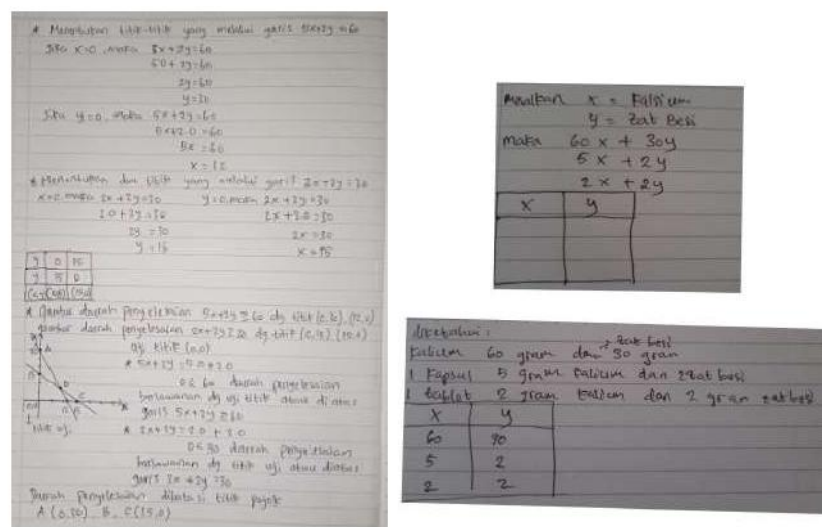 * Menentukan titik-titik yang melalui garis 5x+2y=60
Jika x=0, maka 5x+2y=60
5.0+2y=60
2y=60
y=30
Jika y=0, maka 5x+2y=60
5x+2.0=60
5x=60
x=12
* Menentukan dua titik yang melalui garis 2x+2y=30
x=0, maka 2x+2y=30 y=0, maka 2x+2y=30
2.0+2y=30 2x+2.0=30
2y=30 2x=30
y=15 x=15
0 15
15 0
* gambar daerah penyelesaian 5x+2y≥60 dg titik
gambar daerah penyelesaian 2x+2y≥30 dg titik
uji titik (0,0)
* 5x+2y=5.0+2.0
0≤60 daerah penyelesaian
berlawanan dg uji titik atau diatas
garis 5x+2y≥60
* 2x+2y=2.0+2.0
0≤30 daerah penyelesaian
berlawanan dg titik uji atau diatas
garis 2x+2y=30
Daerah penyelesaian dibatasi titik pojok
A (0,30) B, C (15,0)
Misalkan x = Kalsium
y = Zat Besi
maka 60x + 30y
5x + 2y
2x + 2y
x y
diketahui:
kalsium 60 gram dan 30 gram zat besi
1 kapsul 5 gram kalsium dan 2 zat besi
1 tablet 2 gram kalsium dan 2 gram zat besi
x y
60 30
5 2
2 2